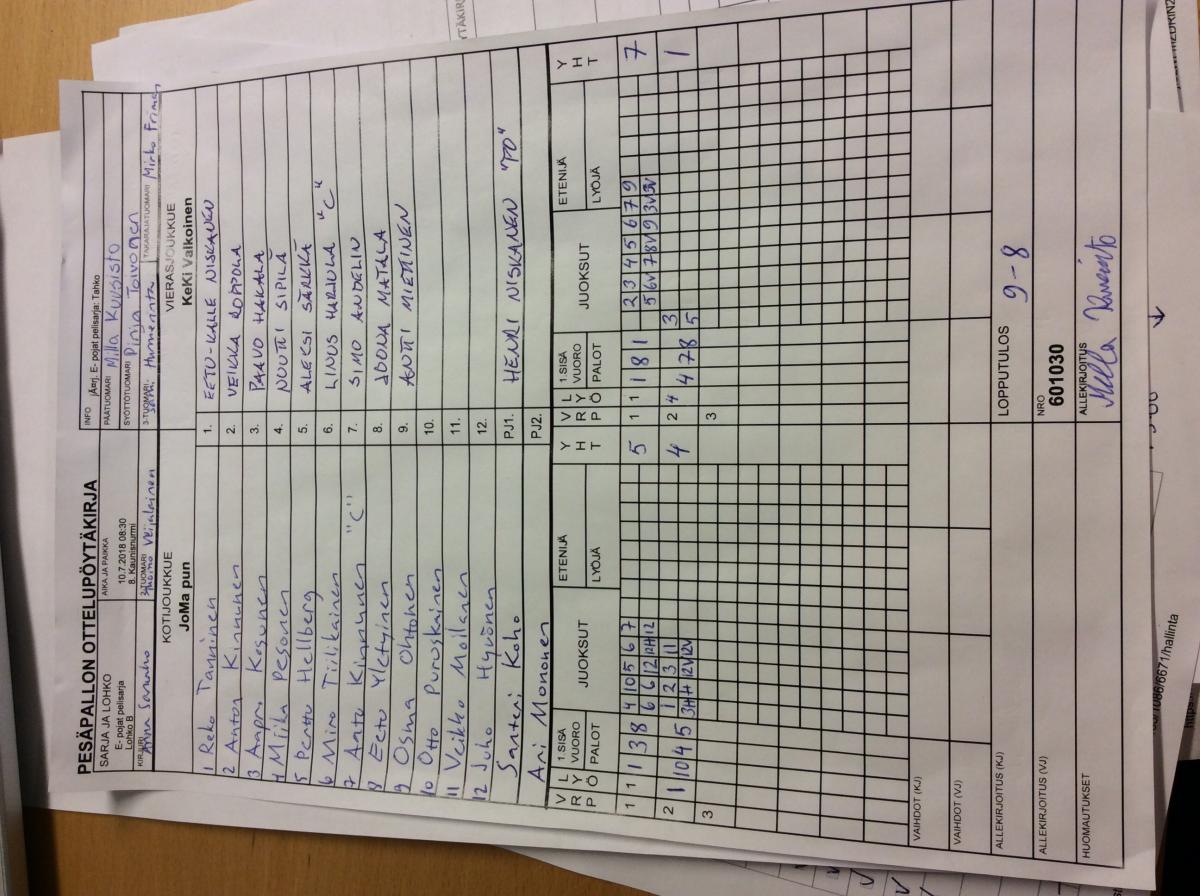 PESÄPALLON OTTELUPÖYTÄKIRJA
SARJA JA LOHKO
E- pojat pelisarja
Lohko B
AIKA JA PAIKKA
10.7.2018 08:30
8. Kaunisnurmi
INFO jÄ¤rj, E- pojat pelisarja: Tahko
PÄÄTUOMARI Milla Kuosisto
SYÖTTÖTUOMARI Pinja Toivonen
KIRJURI
2-TUOMARI Veijalainen
3-TUOMARI
TAKARAJATUOMARI Mirko Friman
KOTIJOUKKUE
JoMa pun
VIERASJOUKKUE
KeKi Valkoinen
1 Reko Tanninen
2 Anton Kinnunen
3 Aapri Kesonen
4 Miika Pesonen
5 Penttu Hellberg
6 Miro Tiilikainen
7 Anto Kinnunen "C"
8 Eetu Yletyinen
9 Osma Ohtonen
10 Otto Puruskainen
11 Veikko Moilanen
12 Juho Hyvönen
Santeri Koho
Ari Mononen
1. EETU-KALLE NISKANEN
2. VEIKKA ROPPOLA
3. PAAVO HAKALA
4. NUUTTI SIPILÄ
5. ALEKSI SÄRKKÄ
6. LINUS HARJULA "C"
7. SIMO ANDELIN
8. JOONA MATALA
9. ANTTI MIETTINEN
10.
11.
12.
PJ1. HENRI NISKANEN "PO"
PJ2.
V R P L Y Ö 1.SISÄ VUORO PALOT JUOKSUT ETENIJÄ LYÖJÄ Y H T
V R P L Y Ö 1.SISÄ VUORO PALOT JUOKSUT ETENIJÄ LYÖJÄ Y H T
1 1 1 3 8 4 10 5 6 7 5
6 6 12 12H 12
1 1 1 8 1 2 3 4 5 6 7 9 7
5 6V 7 8V 9 3V 3V
2 1 10 4 5 1 2 3 11 4
3H 4 12V 12V
2 4 4 7 8 3 1
5
3
3
VAIHDOT (KJ)
VAIHDOT (VJ)
ALLEKIRJOITUS (KJ)
ALLEKIRJOITUS (VJ)
HUOMAUTUKSET
LOPPUTULOS 9-8
NRO
601030
ALLEKIRJOITUS
/1086/6671/hallinta